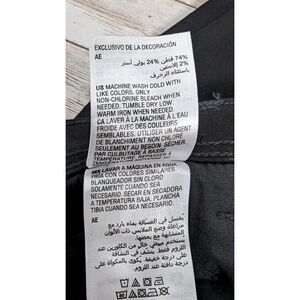 EXCLUSIVO DE LA DECORACIÓN
AE
74% قطن 24% بولى أستر
2% الاستين
باستثناء الزخرف
US MACHINE WASH COLD WITH
LIKE COLORS. ONLY
NON-CHLORINE BLEACH WHEN
NEEDED. TUMBLE DRY LOW.
WARM IRON WHEN NEEDED.
CA LAVER À LA MACHINE À L'EAU
FROIDE AVEC DES COULEURS
SEMBLABLES. UTILISER UN AGENT
DE BLANCHIMENT NON CHLORÉ
SEULEMENT AU BESOIN. SÉCHER
PAR CULBUTAGE À BASSE
TEMPÉRATURE. REPASSER À
MX LAVAR A MÁQUINA EN AGUA
FRÍA CON COLORES SIMILARES.
BLANQUEADOR SIN CLORO
SOLAMENTE CUANDO SEA
NECESARIO. SECAR EN SECADORA
A TEMPERATURA BAJA. PLANCHA
TIBIA CUANDO SEA NECESARIO.
AE
يغسل في الغسالة بماء بارد مع
مراعاة وضع الملابس ذات الألوان
خال من الكلورين عند
على درجة خفيفة
دافئة عند اللزوم.